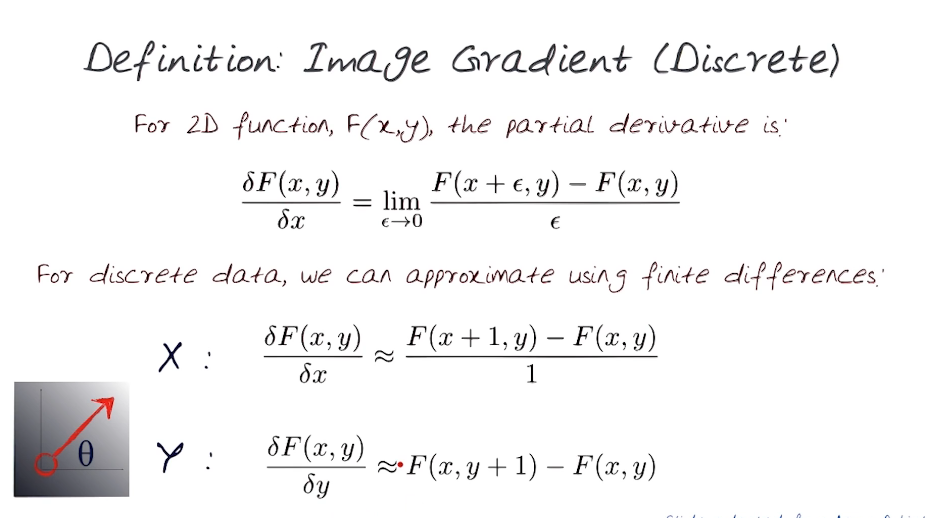 Definition: Image Gradient (Discrete)
For 2D function, F(x,y), the partial derivative is:
δF(x, y)/δx = lim ϵ→0 (F(x + ϵ, y) − F(x, y))/ϵ
For discrete data, we can approximate using finite differences:
X : δF(x, y)/δx ≈ (F(x + 1, y) − F(x, y))/1
θ
Y : δF(x, y)/δy ≈ F(x, y + 1) − F(x, y)